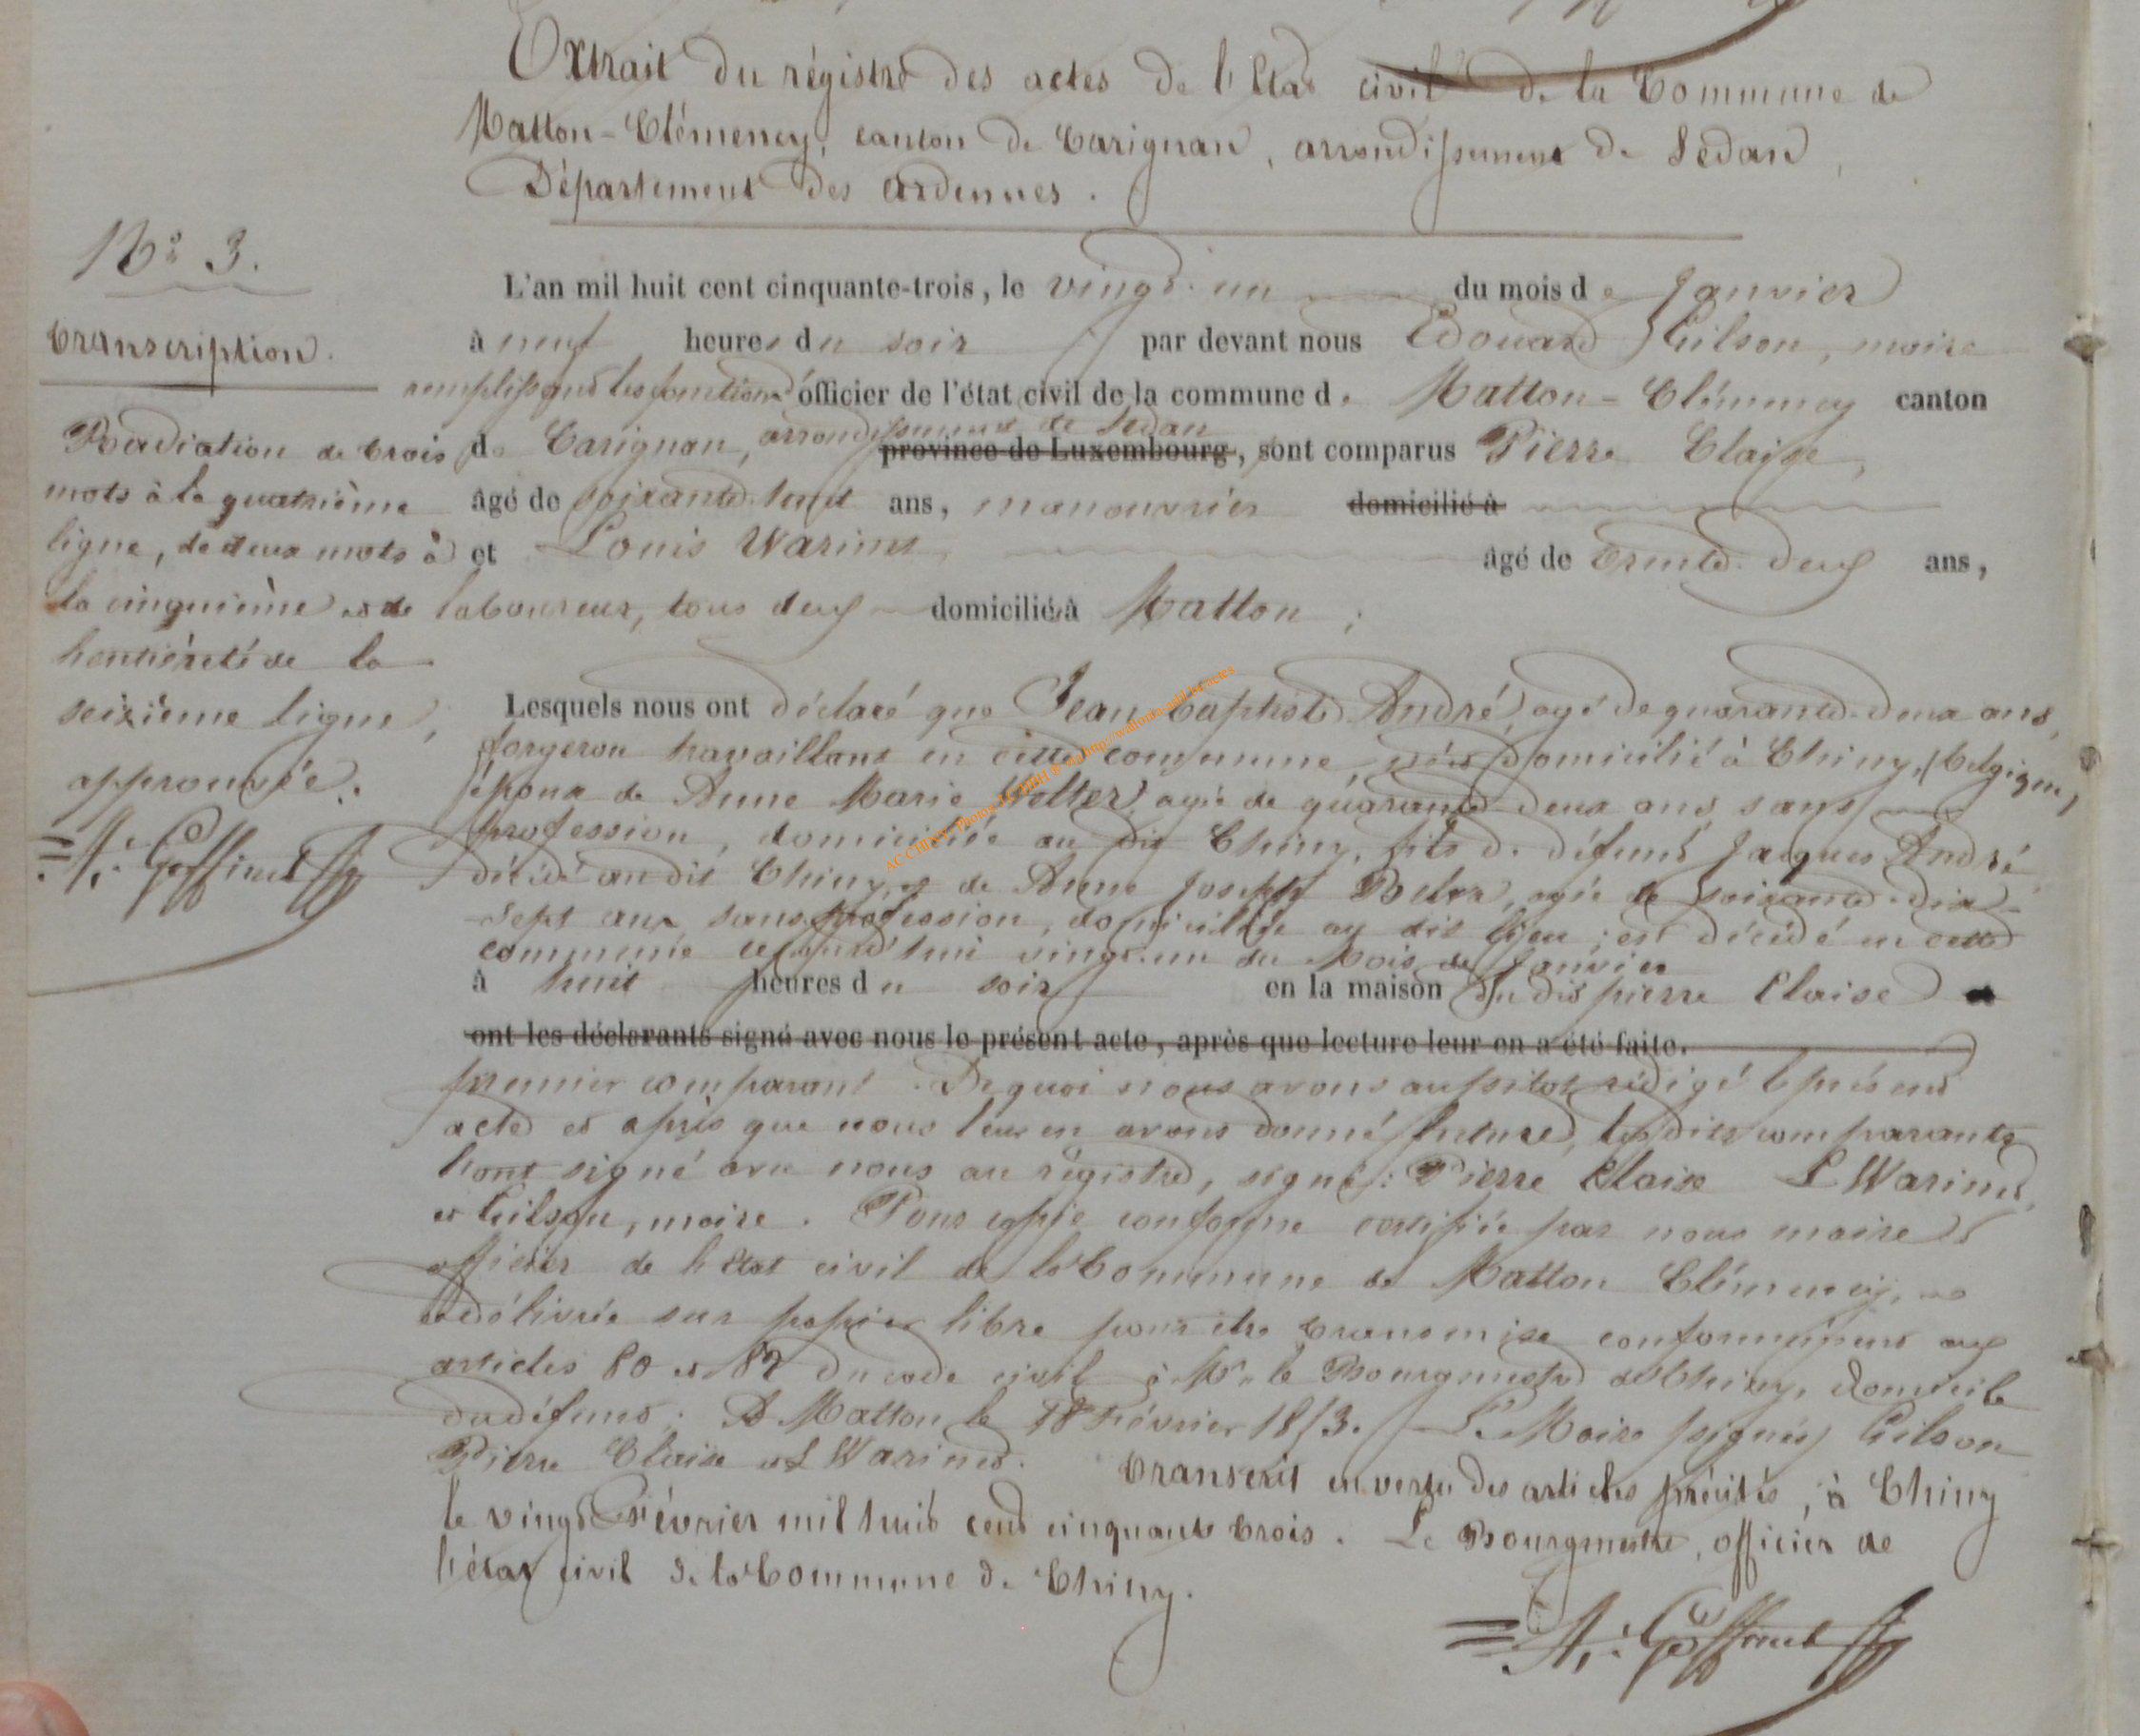 Extrait du régistre des actes de l'Etat civil de la Commune de
Matton-Clémency, canton de Carignan, arrondissement de Sedan,
Département des Ardennes.
No 3.
Transcription.
Radiation de trois
mots à la quatrième
ligne, de deux mots à
la cinquième et de
l'entièreté de la
seixième ligne,
approuvée.
L'an mil huit cent cinquante-trois, le vingt-un du mois de Janvier
à neuf heures du soir par devant nous Edouard Gilson, maire
remplissant les fonctions d'officier de l'état civil de la commune de Matton-Clémency canton
de Carignan, arrondissement de Sedan province de Luxembourg, sont comparus Pierre Claise,
âgé de soixante-huit ans, manouvrier domicilié à
et Louis Warinet, âgé de trente-deux ans,
laboureur, tous deux domiciliés à Matton;
Lesquels nous ont déclaré que Jean baptiste André, agé de quarante-deux ans,
forgeron travaillant en cette commune, domicilié à Chiny, (belgique)
époux de Anne Marie Welter, agée de quarante-deux ans, sans
profession, domiciliée au dit Chiny, fils de défunt Jacques André
décédé au dit Chiny, et de Anne Joseph agée de soixante-dix-
sept ans, sans profession, domiciliée au dit lieu; est décédé en cette
commune cejourd'hui vingt-un du Mois de Janvier
à huit heures du soir en la maison du dit pierre Claise
ont les déclarants signé avec nous le présent acte, après que lecture leur en a été faite.
premier comparant. De quoi nous avons aussitot rédigé le présent
acte et après que nous leur en avons donné lecture, les dits comparants
l'ont signé avec nous au régistre, signé: Pierre Claise L Warinet,
et Gilson, maire. Pour copie conforme certifiée par nous maire
officier de l'état civil de la Commune de Matton Clémency,
et délivrée sur papier libre pour être transmise conformément aux
articles 80 et 82 du code civil à Mr. le Bourgmestre de Chiny, domicile
du défunt; A Matton le 18 Février 1853. Le Maire (signé) Gilson
Pierre Claise et L Warinet. Transcrit en vertu des articles précités, à Chiny
le vingt Février mil huit cent cinquante trois. Le Bourgmestre, officier de
l'état civil de la Commune de Chiny.